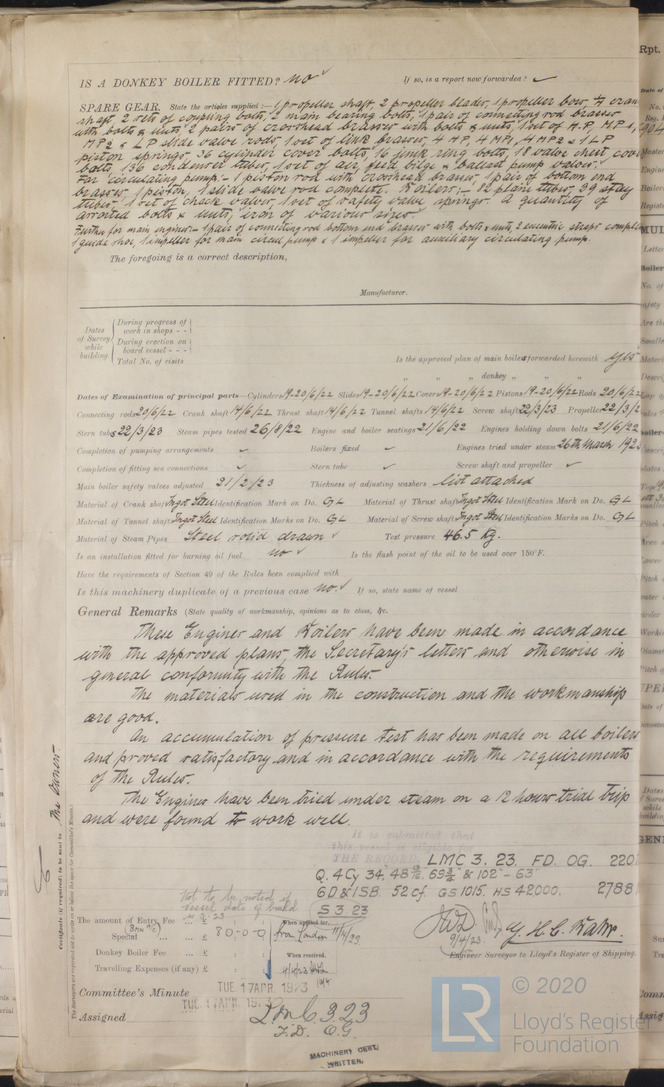 IS A DONKEY BOILER FITTED? no ✓ If so, is a report now forwarded? ✓
SPARE GEAR. State the articles supplied:— 1 propeller shaft, 2 propeller blades, 1 propeller boss, ¼ cran
shaft, 2 sets of coupling bolts, 2 main bearing bolts, 1 pair of connecting rod brasses
with bolts & nuts, 2 pairs of crosshead brasses with bolts & nuts, 1 set of H.P. MP1,
MP2 & LP slide valve rods, 1 set of brasses, 4 HP, 4 MP1, 4 MP2 & 1 LP
piston springs. 36 cylinder cover bolts, 16 junk ring bolts, 18 valve chest cover
bolts, 136 condenser tubes, 1 set of air, feed, bilge & ballast pump valves.
For circulating pump:— 1 piston rod with crosshead brasses, 1 pair of bottom end
brasses, 1 piston, 1 slide valve rod complete. Boilers:— 82 plain tubes, 39 stay
tubes, 1 set of check valves, 1 set of safety valve springs. A quantity of
assorted bolts & nuts, iron of various sizes.
Further for main engines:— 1 pair of connecting rod bottom end brasses with bolts & nuts, 2 eccentric straps comple
1 guide shoe, 1 impeller for main circul pump & 1 impeller for auxiliary circulating pump.
The foregoing is a correct description,
Manufacturer.
Dates of Survey while building
During progress of work in shops - -
During erection on board vessel - - -
Total No. of visits
Is the approved plan of main boiler forwarded herewith yes
" " " donkey " " "
Dates of Examination of principal parts—Cylinders 19-20/6/22 Slides 19-20/6/22 Covers 19-20/6/22 Pistons 19-20/6/22 Rods 20/6/22
Connecting rods 20/6/22 Crank shaft 14/6/22 Thrust shaft 14/6/22 Tunnel shafts 14/6/22 Screw shaft 22/3/23 Propeller 22/3/2
Stern tube 22/3/23 Steam pipes tested 26/8/22 Engine and boiler seatings 21/6/22 Engines holding down bolts 21/6/22
Completion of pumping arrangements ✓ Boilers fixed ✓ Engines tried under steam 26th March 192
Completion of fitting sea connections ✓ Stern tube ✓ Screw shaft and propeller ✓
Main boiler safety valves adjusted 21/2/23 Thickness of adjusting washers list attached
Material of Crank shaft Ingot Steel Identification Mark on Do. GL Material of Thrust shaft Ingot Steel Identification Mark on Do. GL
Material of Tunnel shafts Ingot Steel Identification Marks on Do. GL Material of Screw shafts Ingot Steel Identification Marks on Do. GL
Material of Steam Pipes Steel solid drawn ✓ Test pressure 46.5 Kg.
Is an installation fitted for burning oil fuel no ✓ Is the flash point of the oil to be used over 150°F.
Have the requirements of Section 49 of the Rules been complied with
Is this machinery duplicate of a previous case no. ✓ If so, state name of vessel
General Remarks (State quality of workmanship, opinions as to class, &c.
These Engines and Boilers have been made in accordance
with the approved plans, the Secretary's letters and otherwise in
general conformity with the Rules.
The materials used in the construction and the workmanship
are good.
An accumulation of pressure test has been made on all boilers
and proved satisfactory and in accordance with the requirements
of the Rules.
The Engines have been tried under steam on a 12 hours trial trip
and were found to work well.
It is submitted that
this vessel is eligible for
THE RECORD. LMC 3. 23. FD. OG. 220
Q. 4 Cy 34, 48 69 & 102 - 63
6 D & 1 SB. 52 cf. GS 1015. HS 42,000. 2788
S 3 23
Not to be noted if
vessel date of build
The amount of Entry Fee ... £
Special ... ... £ 80-0-0
Donkey Boiler Fee ... £
Travelling Expenses (if any) £
When applied for,
from London 11/4/23
When received,
9/4/23
Engineer Surveyor to Lloyd's Register of Shipping.
Committee's Minute TUE 17 APR. 1923
TUE. 17 APR. 1923
Assigned LMC 3.23
F.D. O.G.
MACHINERY CERT.
WRITTEN.
Certificate (if required) to be sent to The Owners
© 2020
Lloyd's Register
Foundation